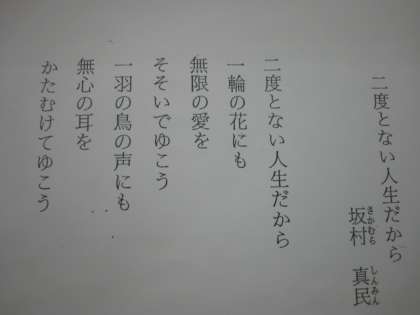 二度とない人生だから
坂村 真民
さかむら しんみん
二度とない人生だから
一輪の花にも
無限の愛を
そそいでゆこう
一羽の鳥の声にも
無心の耳を
かたむけてゆこう